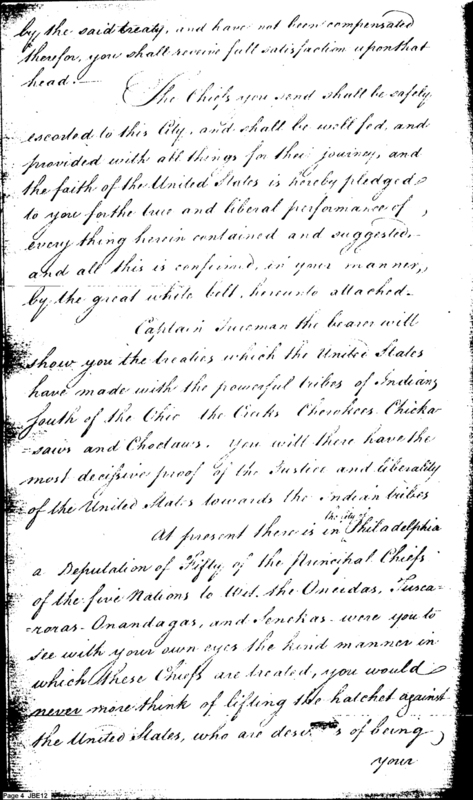 by the said treaty, and have not been compensated
therefor, you shall receive full satisfaction upon that
head.—
The Chiefs you send shall be safely
escorted to this City, and shall be well fed, and
provided with all things for their journey, and
the faith of the United States is hereby pledged
to you for the true and liberal performance of
every thing herein contained and suggested,
and all this is confirmed, in your manner,
by the great white belt, hereunto attached.
Captain the bearer will
show you the treaties which the United States
have made with the powerful tribes of Indians
South of the Ohio the Creeks Cherokees. Chicka-
-saws and Choctaws. You will there have the
most decissive proof of the Justice and liberality
of the United States towards the Indian tribes
At present there is in the city of Philadelphia
a Deputation of Fifty of the Principal Chiefs
of the five Nations to Wit. the Oneidas, Tusca-
-roras. Onandagas, and Senekas. were you to
see with your own eyes the kind manner in
which these Chiefs are treated, you would
never more think of lifting the hatchet against
the United States, who are of being
your
Page 4 JBE12